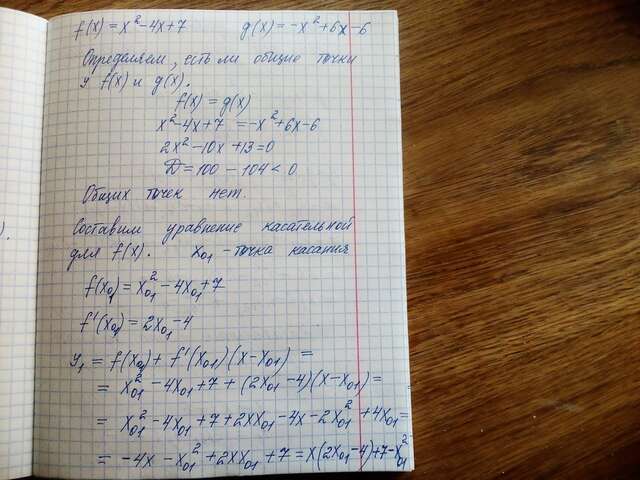 f(x) = x² - 4x + 7     g(x) = -x² + 6x - 6
Определяем, есть ли общие точки
у f(x) и g(x).
f(x) = g(x)
x² - 4x + 7 = -x² + 6x - 6
2x² - 10x + 13 = 0
D = 100 - 104 < 0
Общих точек нет.
Составим уравнение касательной
для f(x). x₀₁ - точка касания
f(x₀₁) = x₀₁² - 4x₀₁ + 7
f'(x₀₁) = 2x₀₁ - 4
y₁ = f(x₀₁) + f'(x₀₁)(x - x₀₁) =
= x₀₁² - 4x₀₁ + 7 + (2x₀₁ - 4)(x - x₀₁) =
= x₀₁² - 4x₀₁ + 7 + 2xx₀₁ - 4x - 2x₀₁² + 4x₀₁ =
= -4x - x₀₁² + 2xx₀₁ + 7 = x(2x₀₁ - 4) + 7 - x₀₁²
).